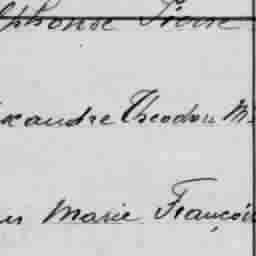 lphonse Pierre
exandre Theodore M
Marie François